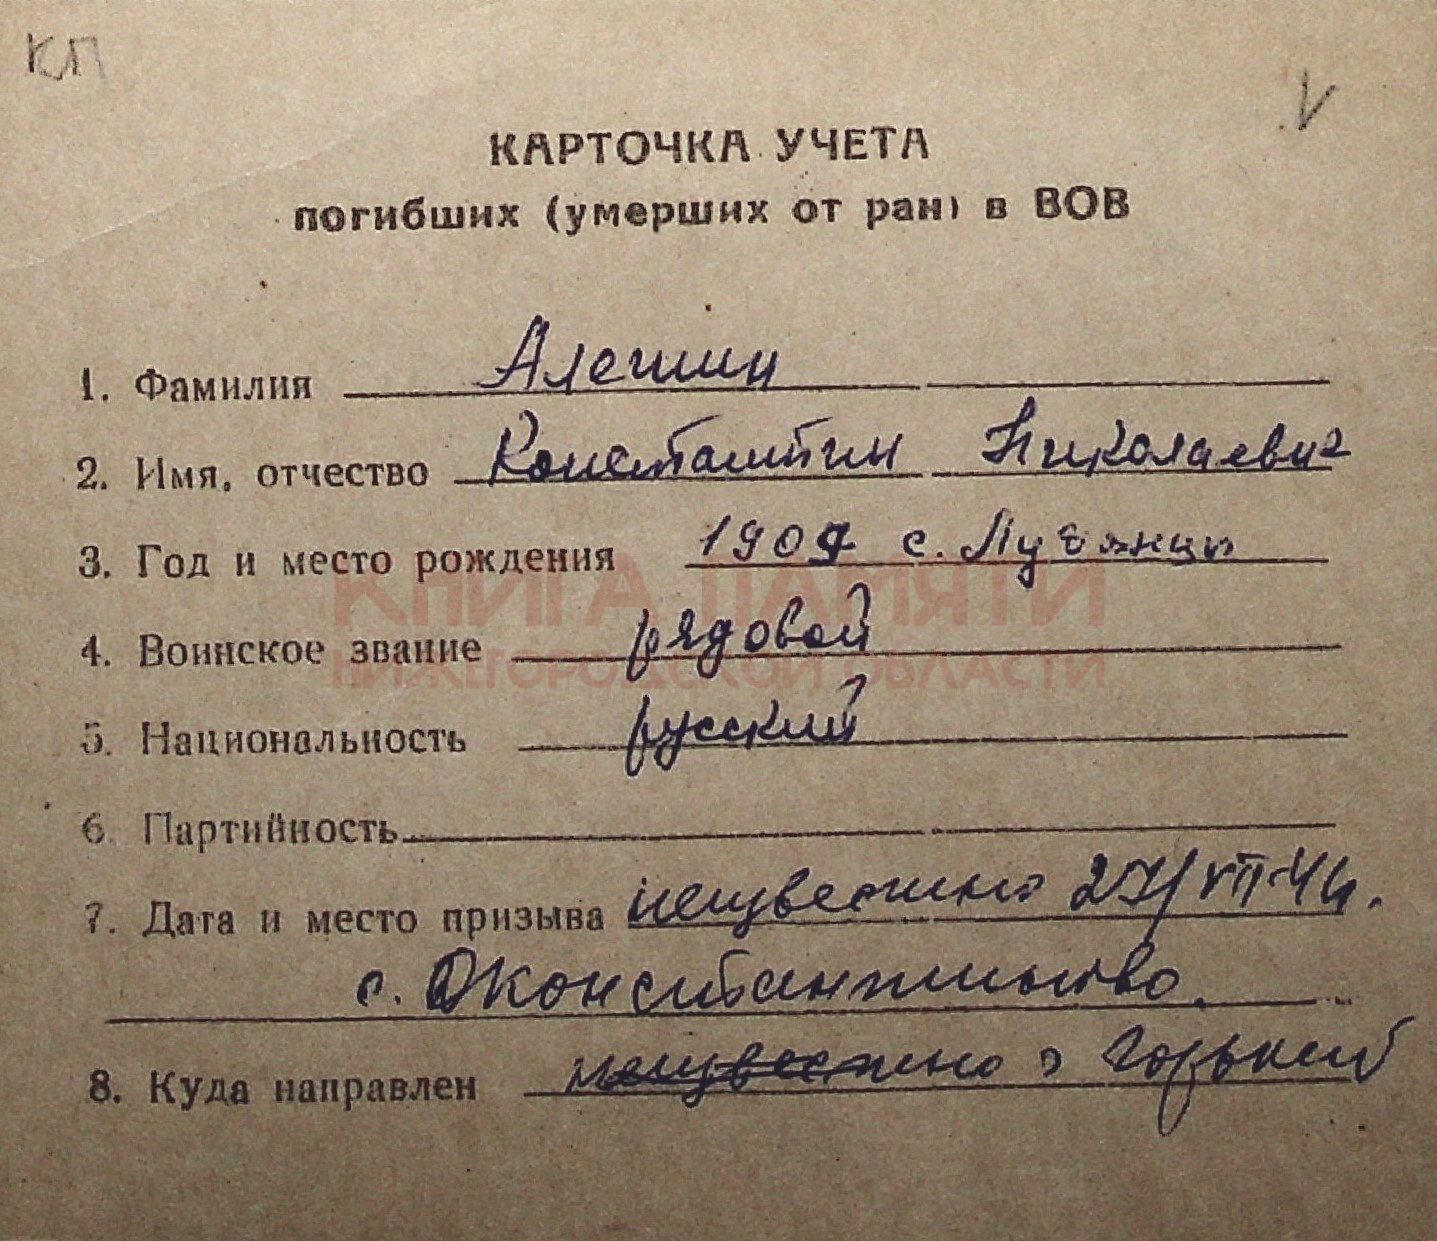 КП
V
КАРТОЧКА УЧЕТА
погибших (умерших от ран) в ВОВ
1. Фамилия Алешин
2. Имя, отчество Константин Николаевич
3. Год и место рождения 1907 с. Лубянцы
КНИГА ПАМЯТИ
4. Воинское звание рядовой
НИЖЕГОРОДСКОЙ ОБЛАСТИ
5. Национальность русский
6. Партийность
7. Дата и место призыва неизвестно VII-41.
с.
8. Куда направлен неизвестно Горький